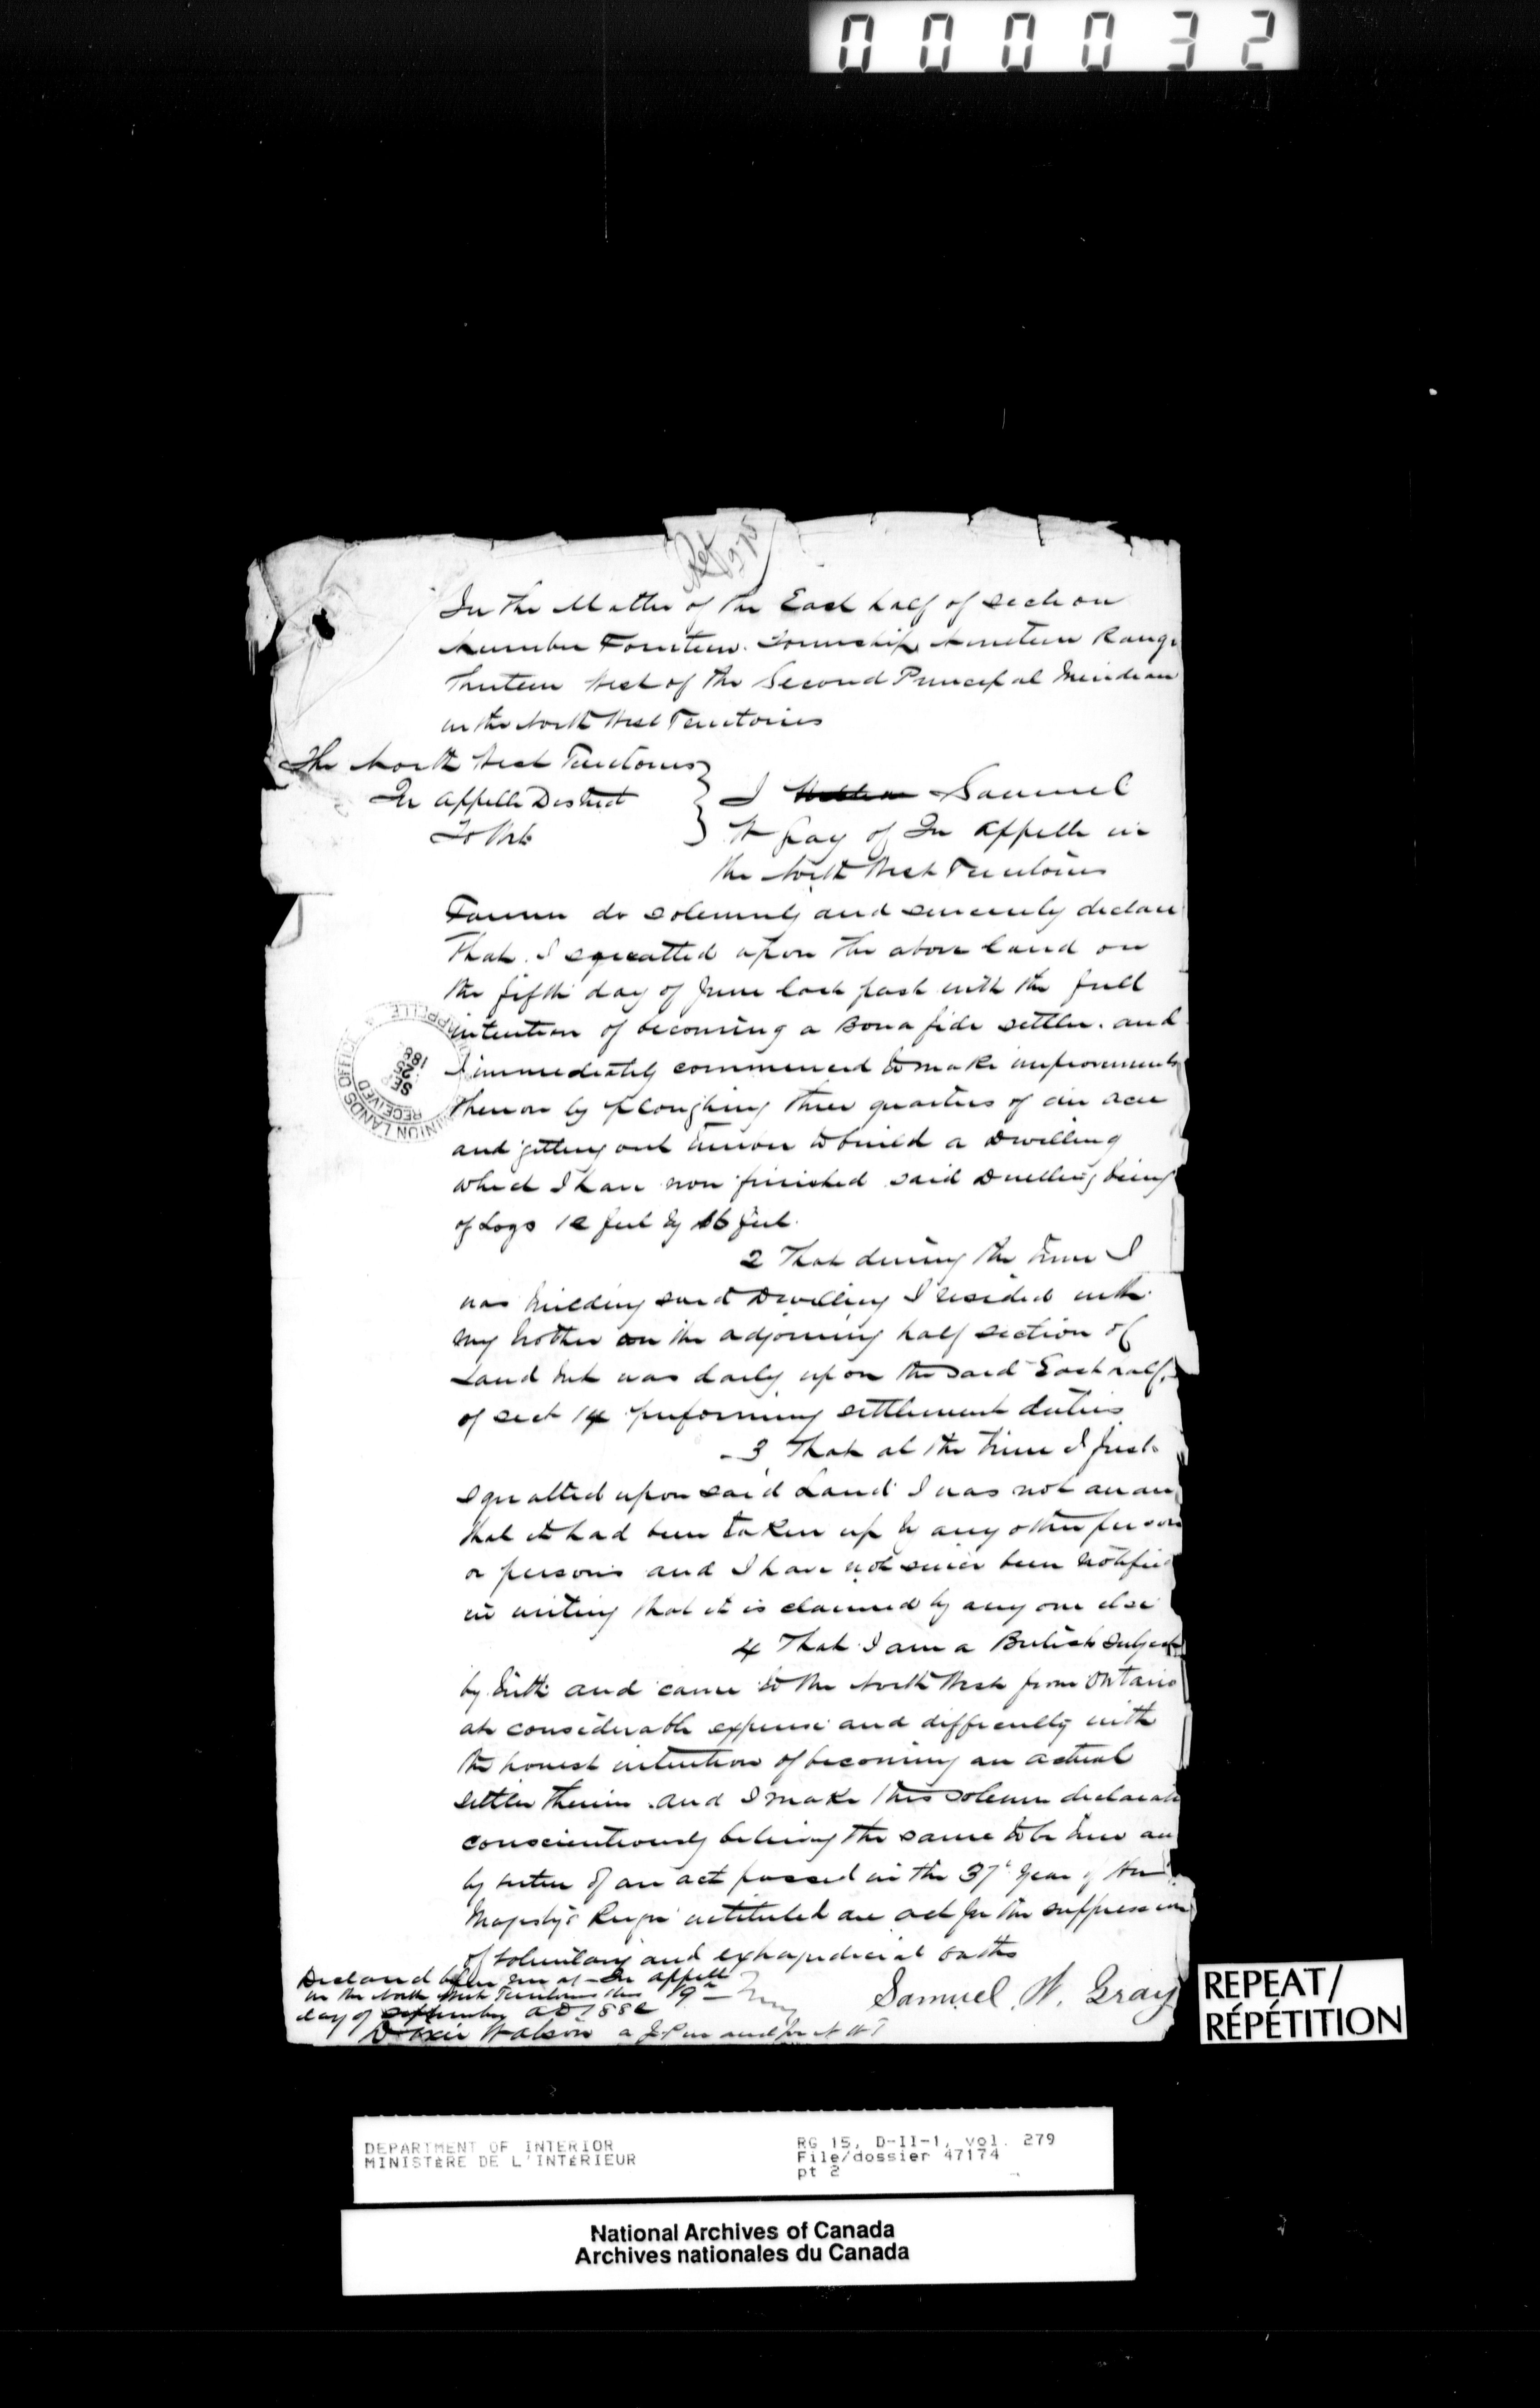 000032
Ref
In the Matter of the East half of section
Number Fourteen. Township Nineteen Range
Thirteen West of the Second Principal Meridian
in the North West Territories
The North West Territories
Qu Appelle District
To Wit
I Samuel
W Gray of Qu Appelle in
the North West Territories
Farmer do solemnly and sincerely declare
That I squatted upon the above land on
the fifth day of June last past with the full
intention of becoming a Bona fide settler. and
I immediately commenced to make improvements
thereon by ploughing three quarters of an acre
and getting out timber to build a Dwelling
which I have now finished said Dwelling being
of Logs 12 feet by 16 feet.
2 That during the time I
was building said Dwelling I resided with
my brother on the adjoining half section of
Land but was daily upon the said East half
of sect 14 performing settlement duties
- 3 That at the time I first
squatted upon said Land I was not aware
that it had been taken up by any other person
or persons and I have not since been notified
in writing that it is claimed by any one else
4 That I am a British subject
by birth and came to the North West from Ontario
at considerable expense and difficulty with
the honest intention of becoming an actual
settler therein. and I make this solemn declarati
conscientiously believing the same to be true an
by virtue of an act passed in the 37th year of Her
Majesty's Reign intituled an act for the suppression
of voluntary and extrajudicial oaths
Declared before me at Qu Appelle
in the North West Territories this 19th
day of September AD 1882
Dixie Watson a J.P in and for N W T
Samuel. W. Gray
DOMINION LANDS OFFICE
QU'APPELLE
RECEIVED
SE
REPEAT/
RÉPÉTITION
DEPARTMENT OF INTERIOR
MINISTÈRE DE L'INTÉRIEUR
RG 15, D-II-1, vol. 279
File/dossier 47174
pt 2
National Archives of Canada
Archives nationales du Canada